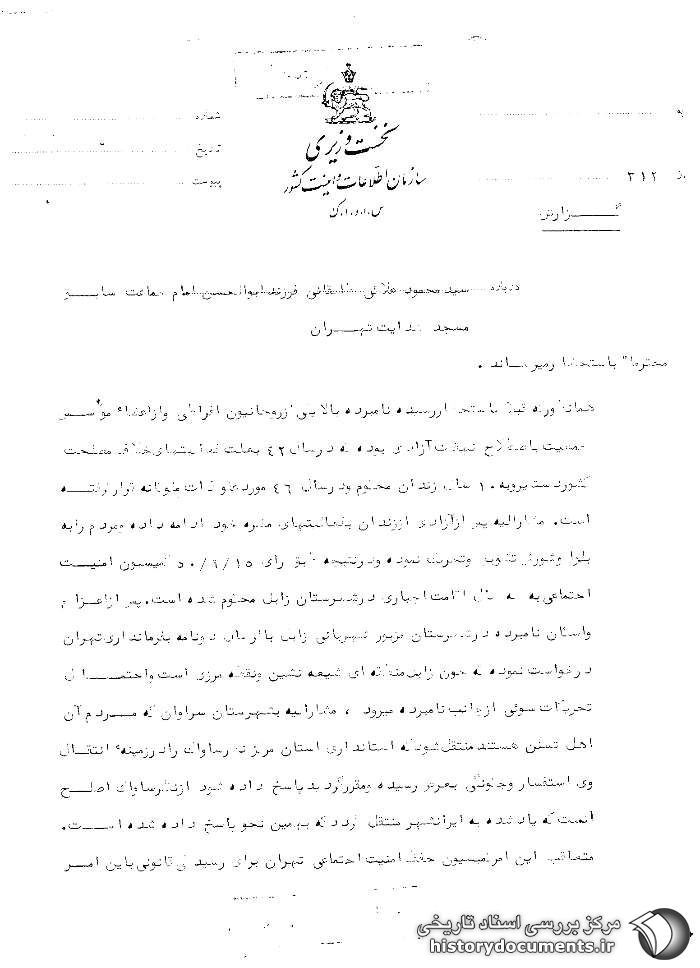 نخست وزیری
سازمان اطلاعات و امنیت کشور
س.ا.و.ا.ک
شماره
تاریخ
پیوست
به
از ۳۱۲
گزارش
درباره سید محمود علائی طالقانی فرزند ابوالحسن امام جماعت سابق
مسجد هدایت تهران
محترما" باستحضار میرساند .
همانطوریکه قبلا باستحضار رسیده نامبرده بالا یکی از روحانیون افراطی و از اعضاء موسس
جمعیت باصطلاح نهضت آزادی بوده که در سال ۴۲ بعلت فعالیتهای خلاف مصلحت
کشور دستگیر و به ۱۰ سال زندان محکوم و در سال ۴۶ مورد عفو ملوکانه قرار گرفته
است. مشارالیه پس از آزادی از زندان بفعالیتهای مضره خود ادامه داده و مردم را به
بلوا و شورش تشویق و تحریک نموده و در نتیجه طبق رای ۵۰/۹/۱۵ کمیسیون امنیت
اجتماعی به سه سال اقامت اجباری در شهرستان زابل محکوم شده است. پس از اعزام
واسکان نامبرده در شهرستان مزبور شهربانی زابل با ارسال دو نامه بفرمانداری تهران
درخواست نموده که چون زابل منطقه ای شیعه نشین و نقطه مرزی است و احتمال
تحریکات سوئی از جانب نامبرده میرود ، مشارالیه بشهرستان سراوان که مردم آن
اهل تسنن هستند منتقل شود که استانداری استان مرکز نظر ساواک را در زمینه انتقال
وی استفسار و چگونگی بعرض رسیده و مقرر گردید پاسخ داده شود از نظر ساواک اصلح
آنست که یاد شده به ایرانشهر منتقل گردد که بهمین نحو پاسخ داده شده است.
متعاقب این امر کمیسیون حفظ امنیت اجتماعی تهران برای رسیدگی قانونی باین امر
مرکز بررسی اسناد تاریخی
historydocuments.ir